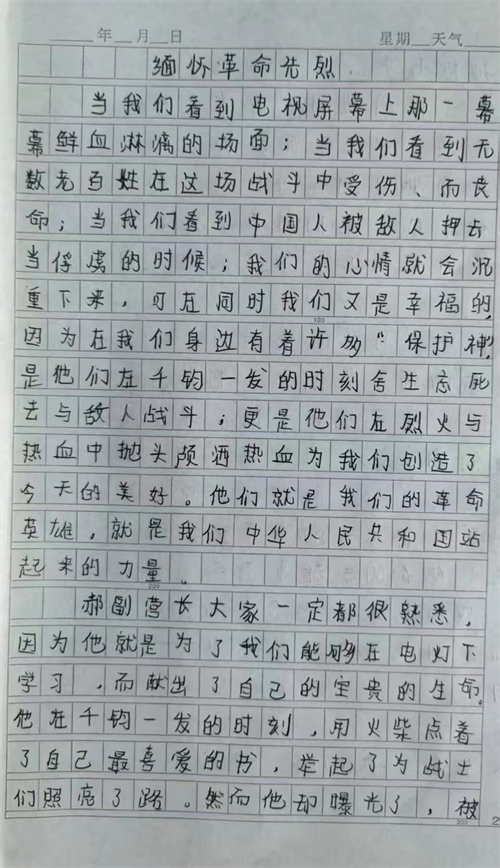 年 月 日 星期 天气
缅怀革命先烈
当我们看到电视屏幕上那一幕
幕鲜血淋漓的场面；当我们看到无
数老百姓在这场战斗中受伤、而丧
命；当我们看到中国人被敌人押去
当俘虏的时候；我们的心情就会沉
重下来，可在同时我们又是幸福的，
因为在我们身边有着许多“保护神”，
是他们在千钧一发的时刻舍生忘死
去与敌人战斗；更是他们在烈火与
热血中抛头颅洒热血为我们创造了
今天的美好。他们就是我们的革命
英雄，就是我们中华人民共和国站
起来的力量。
郝副营长大家一定都很熟悉，
因为他就是为了我们能够在电灯下
学习，而献出了自己的宝贵的生命。
他在千钧一发的时刻，用火柴点着
了自己最喜爱的书，举起了为战士
们照亮了路。然而他却曝光了，被